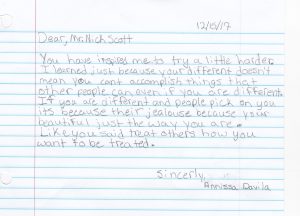 12/15/17
Dear, Mr. Nick Scott
You have inspired me to try a little harder.
I learned just because your different doesn't
mean you cant accomplish things that
other people can even if you are different.
If you are different and people pick on you
its because their jealouse because your
beautiful just the way you are.
Like you said treat others how you
want to be treated.
Sincerly,
Annissa Davila